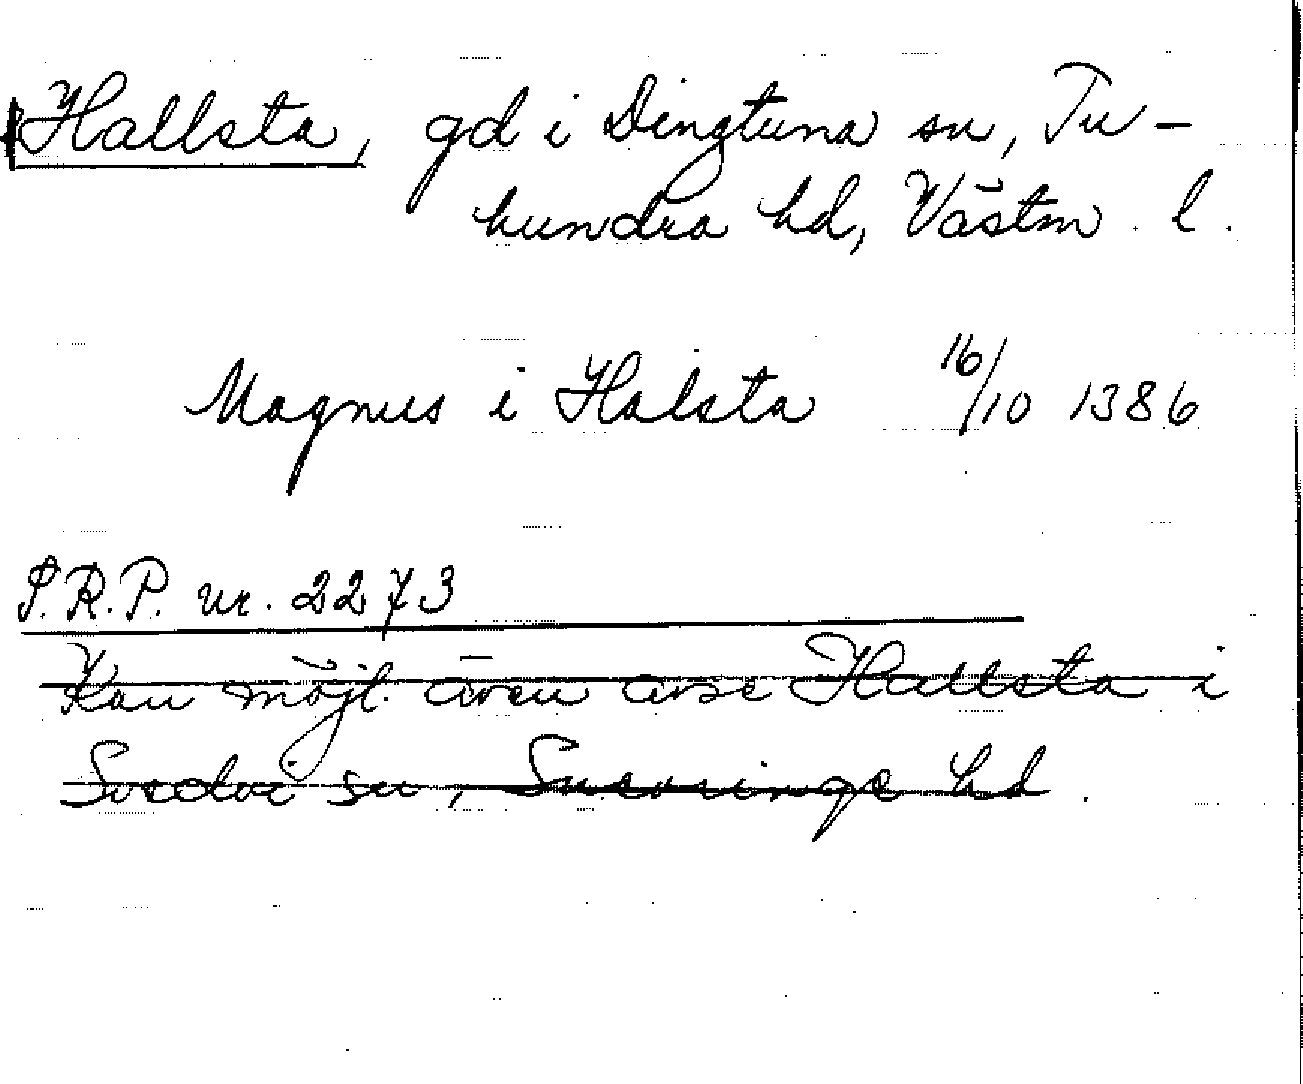 Hallsta, gd i Dingtuna sn, Tu-
hundra hd, Västm. l.
Magnus i Halsta 16/10 1386
S.R.P. nr. 2273
Kan möjl. även avse Hallsta i
Svedvi sn, Snevringe hd.